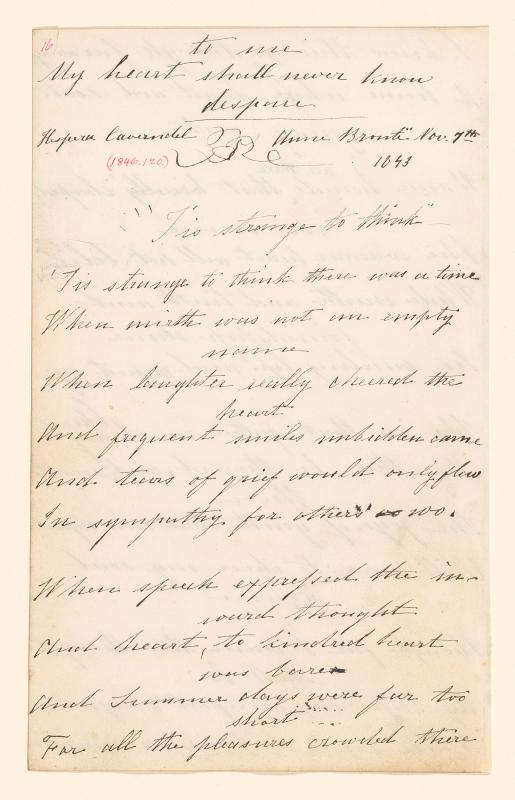 16
to me
My heart shall never know
despair
Hespera Caverndel Anne Brontë Nov. 7th
(1846.120.) 1843
"'Tis strange to think"
'Tis strange to think there was a time
When mirth was not an empty
name
When laughter really cheered the
heart
And frequent smiles unbidden came
And tears of grief would only flow
In sympathy for others' wo.
When speech expressed the in-
ward thought
And heart, to kindred heart
was bare
And Summer days were far too
short
For all the pleasures crowded there